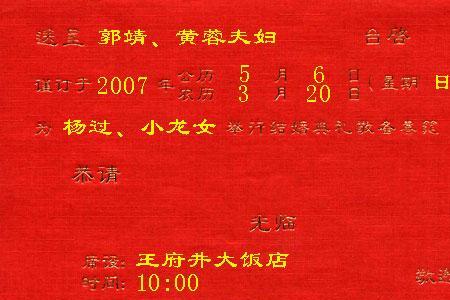 送呈 郭靖、黄蓉夫妇 台启
谨订于 2007 年 公历 5 月 6 日 ( 星期 日
农历 3 月 20 日
为 杨过、小龙女 举行结婚典礼敬备喜筵
恭请
光临
席设: 王府井大饭店
时间: 10:00
敬邀